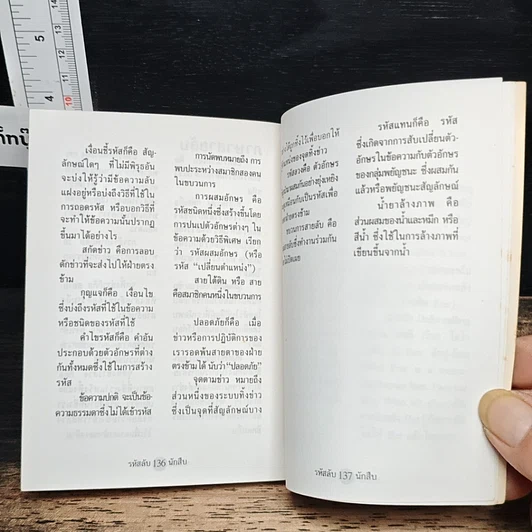 เงื่อนชี้รหัสก็คือ สัญ-
ลักษณ์ใดๆ ที่ไม่มีพิรุธอัน
จะบ่งให้รู้ว่ามีข้อความลับ
แฝงอยู่หรือบ่งถึงวิธีที่ใช้ใน
การถอดรหัส หรือบอกวิธีที่
จะทำให้ข้อความนั้นปรากฏ
ขึ้นมาได้อย่างไร
สกัดข่าว คือการลอบ
ดักข่าวที่จะส่งไปให้ฝ่ายตรง
ข้าม
กุญแจก็คือ เงื่อนไข
ซึ่งบ่งถึงรหัสที่ใช้ในข้อความ
หรือชนิดของรหัสที่ใช้
คำไขรหัสก็คือ คำอัน
ประกอบด้วยตัวอักษรที่ต่าง
กันทั้งหมดซึ่งใช้ในการสร้าง
รหัส
ข้อความปกติ จะเป็นข้อ-
ความธรรมดาซึ่งไม่ได้เข้ารหัส
การนัดพบหมายถึง การ
พบประหว่างสมาชิกสองคน
ในขบวนการ
การผสมอักษร คือ
รหัสชนิดหนึ่งซึ่งสร้างขึ้นโดย
การปนเปตัวอักษรต่างๆ ใน
ข้อความด้วยวิธีพิเศษ เรียก
ว่า รหัสผสมอักษร (หรือ
รหัส "เปลี่ยนตำแหน่ง")
สายใต้ดิน หรือ สาย
คือสมาชิกคนหนึ่งในขบวนการ
ปลอดภัยก็คือ เมื่อ
ข่าวหรือการปฏิบัติการของ
เรารอดพ้นสายตาของฝ่าย
ตรงข้ามได้ นับว่า "ปลอดภัย"
จุดตามข่าว หมายถึง
ส่วนหนึ่งของระบบทิ้งข่าว
ซึ่งเป็นจุดที่สัญลักษณ์บาง
รหัสลับ 136 นักสืบ
ทิ้งไว้เพื่อบอกให้
หน่งของจุดทิ้งข่าว
รหัสวงคือ ตัวอักษร
ผสมกันอย่างยุ่งเหยิง
ขบวนการสายลับ คือ
ซึ่งทำงานร่วมกัน
รหัสแทนก็คือ รหัส
ซึ่งเกิดจากการสับเปลี่ยนตัว-
อักษรในข้อความกับตัวอักษร
ของกลุ่มพยัญชนะ ซึ่งผสมกัน
แล้วหรือพยัญชนะสัญลักษณ์
น้ำยาล้างภาพ คือ
ส่วนผสมของน้ำและหมึก หรือ
สีน้ำ ซึ่งใช้ในการล้างภาพที่
เขียนขึ้นจากน้ำ
รหัสลับ 137 นักสืบ
5
4
10